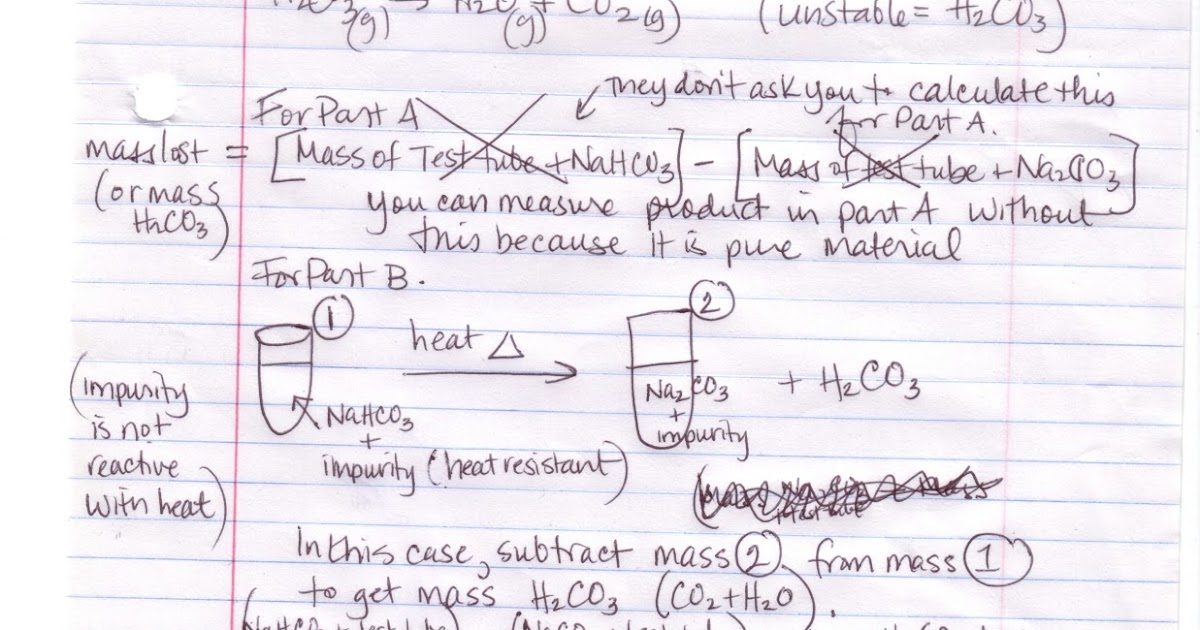 H2CO3 (g) → H2O (g) + CO2(g) (unstable = H2CO3)
For Part A
They don't ask you to calculate this
for Part A.
mass lost = [Mass of Test tube + NaHCO3] - [Mass of test tube + Na2CO3]
(or mass
H2CO3)
you can measure product in part A without
this because it is pure material
For Part B.
1
2
heat △
Na2CO3
+
impurity
+ H2CO3
NaHCO3
+
impurity (heat resistant)
(impurity
is not
reactive
with heat)
In this case, subtract mass 2 from mass 1
to get mass H2CO3 (CO2+H2O).